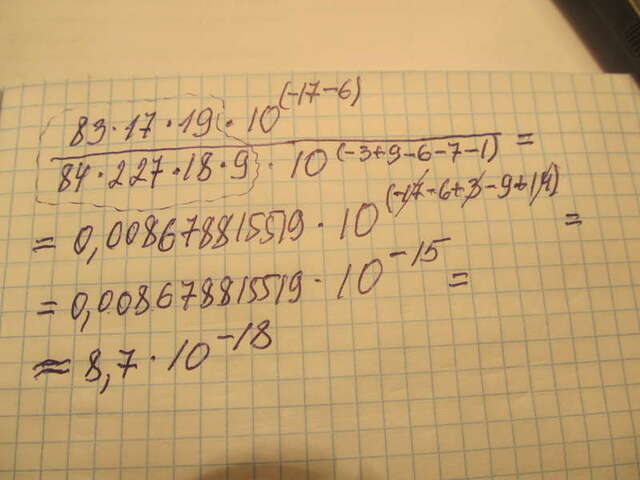 83·17·19·10^(-17-6)
84·227·18·9·10^(-3+9-6-7-1) =
= 0,008678815519·10^(-17-6+3-9+14) =
= 0,008678815519·10^-15 =
≈ 8,7·10^-18